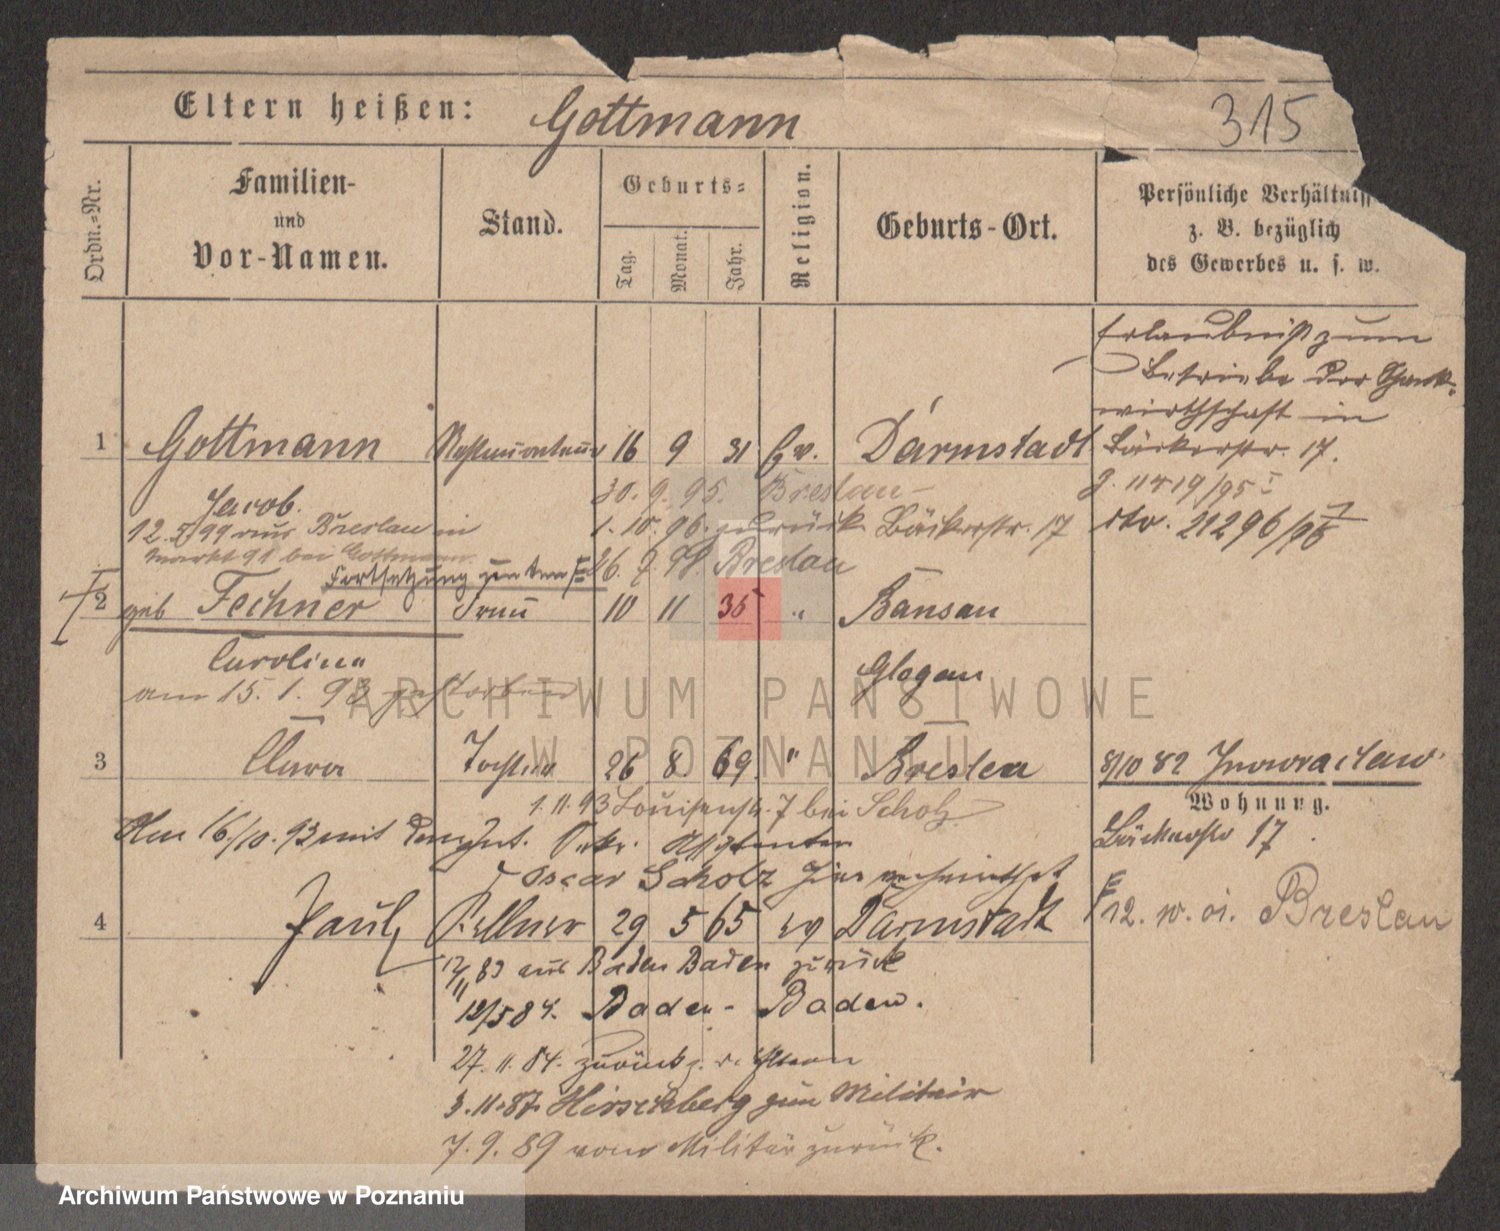 Eltern heißen: Gottmann 315
Ordn.-Nr.
Familien-
und
Vor-Namen.
Stand.
Geburts-
Tag.
Monat.
Jahr.
Religion.
Geburts-Ort.
Persönliche Verhältniss
z. B. bezüglich
des Gewerbes u. s. w.
Erlaubniß zum
Betriebe der Schank-
wirthschaft in
1 Gottmann Restaurateur 16 9 31 Ev. Darmstadt Bäckerstr. 17.
30. 9. 95. Breslau J. 11419/95 I
Jacob.
12. 99 aus Breslau in 1. 10. 96. zurück Bäckerstr. 17 21296/96
Markt 91 bei Gottmann
26. 7. 98 Breslau
Fortsetzung
2 geb Fechner Frau 10 11 35 " Bansau
Carolina Glogau
am 15. 1. 93 gestorben
3 Clara Tochter 26 8. 69. " Breslau 8/10 82 Inowraclaw
1. 11. 93 Louisenstr. 7 bei Scholz
Wohnung.
Am 16/10. 93 mit dem Assistenten Bäckerstr 17
Oscar Scholz hier verheirathet
4 Paul Kellner 29 5 65 ev Darmstadt 12. 10. 01. Breslau
17/11 83 aus Baden Baden zurück
12/5 84. Baden-Baden.
27. 11. 84. zurück z. d. Eltern
3. 11. 87. Hirschberg zum Militair
7. 9. 89 vom Militär zurück.
ARCHIWUM PAŃSTWOWE
W POZNANIU
Archiwum Państwowe w Poznaniu